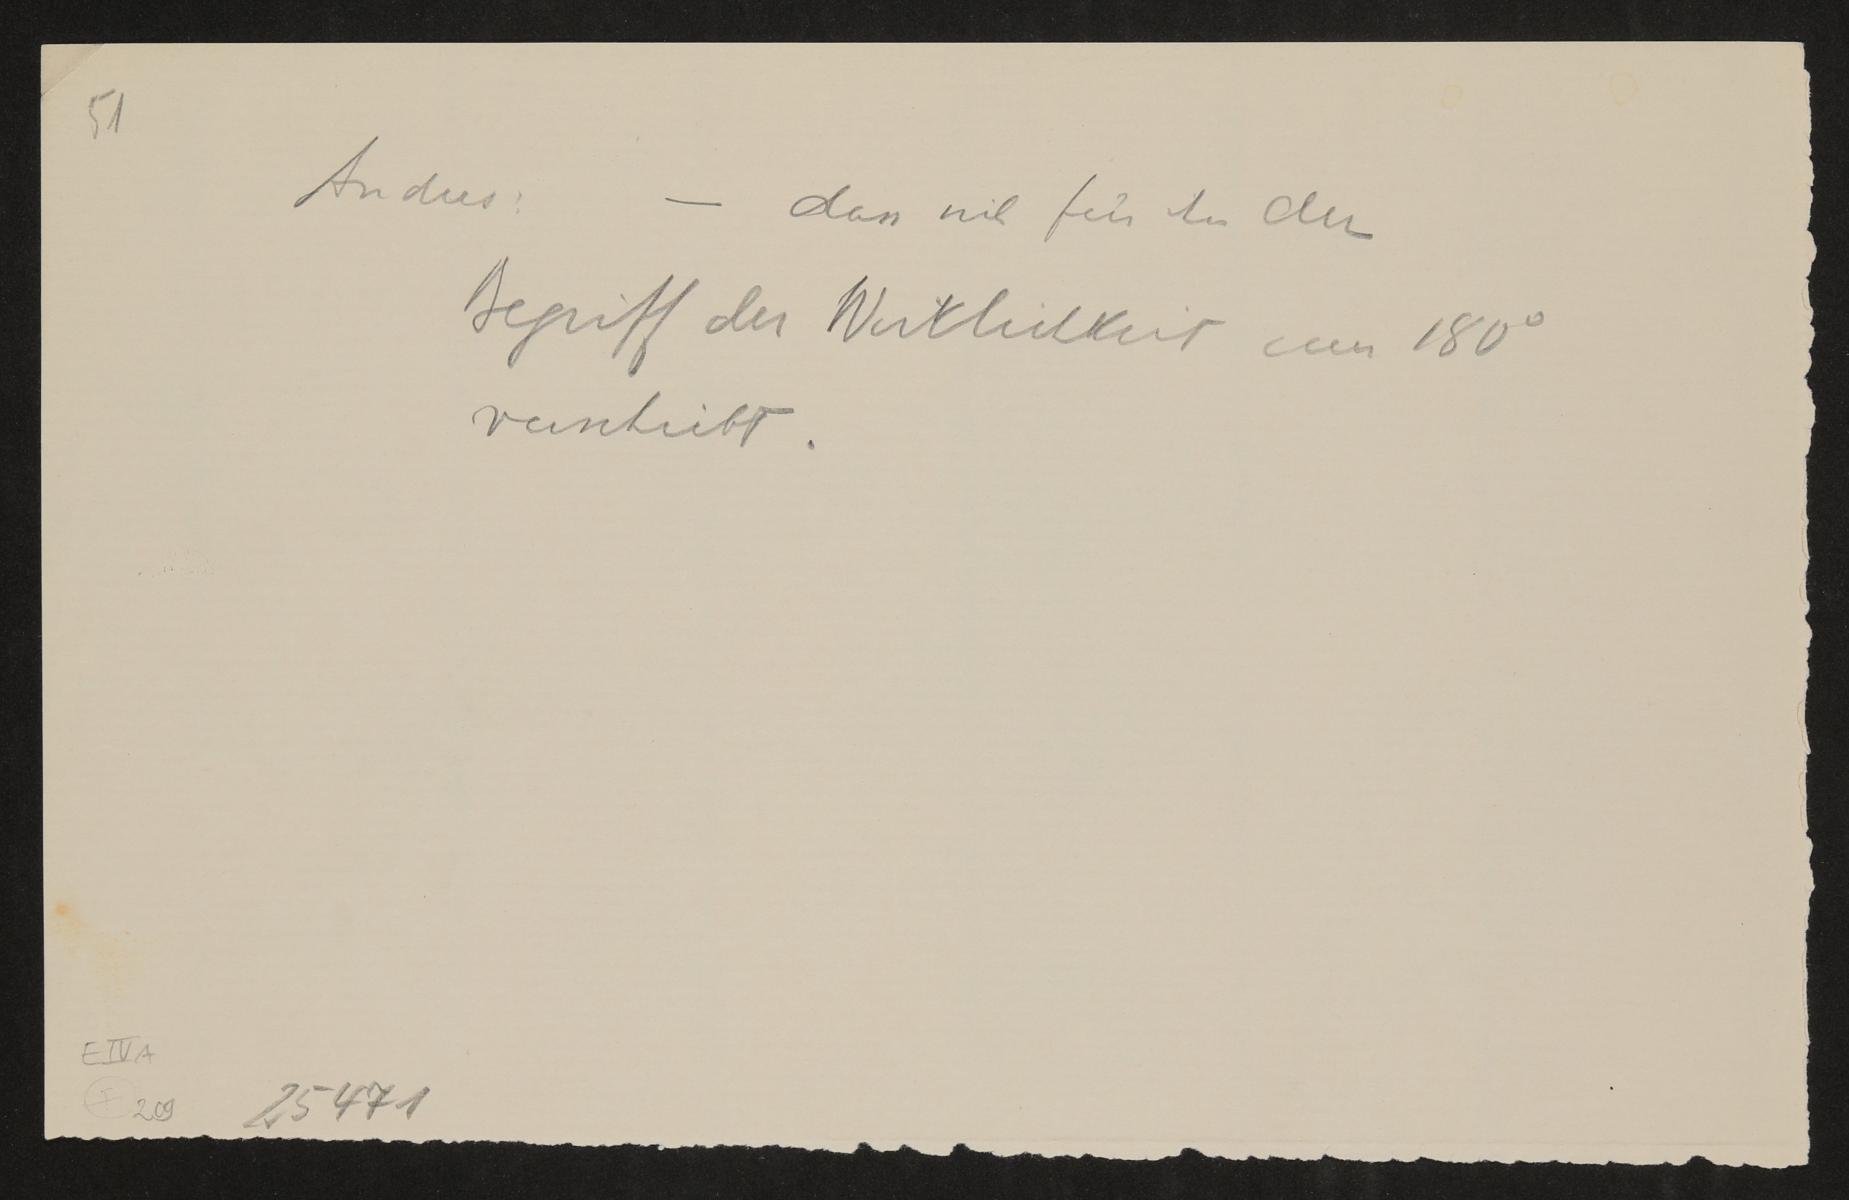 51
Anders: — dass sich für ihn der
Begriff der Wirklichkeit um 180°
verschiebt.
E IV A
209 25471